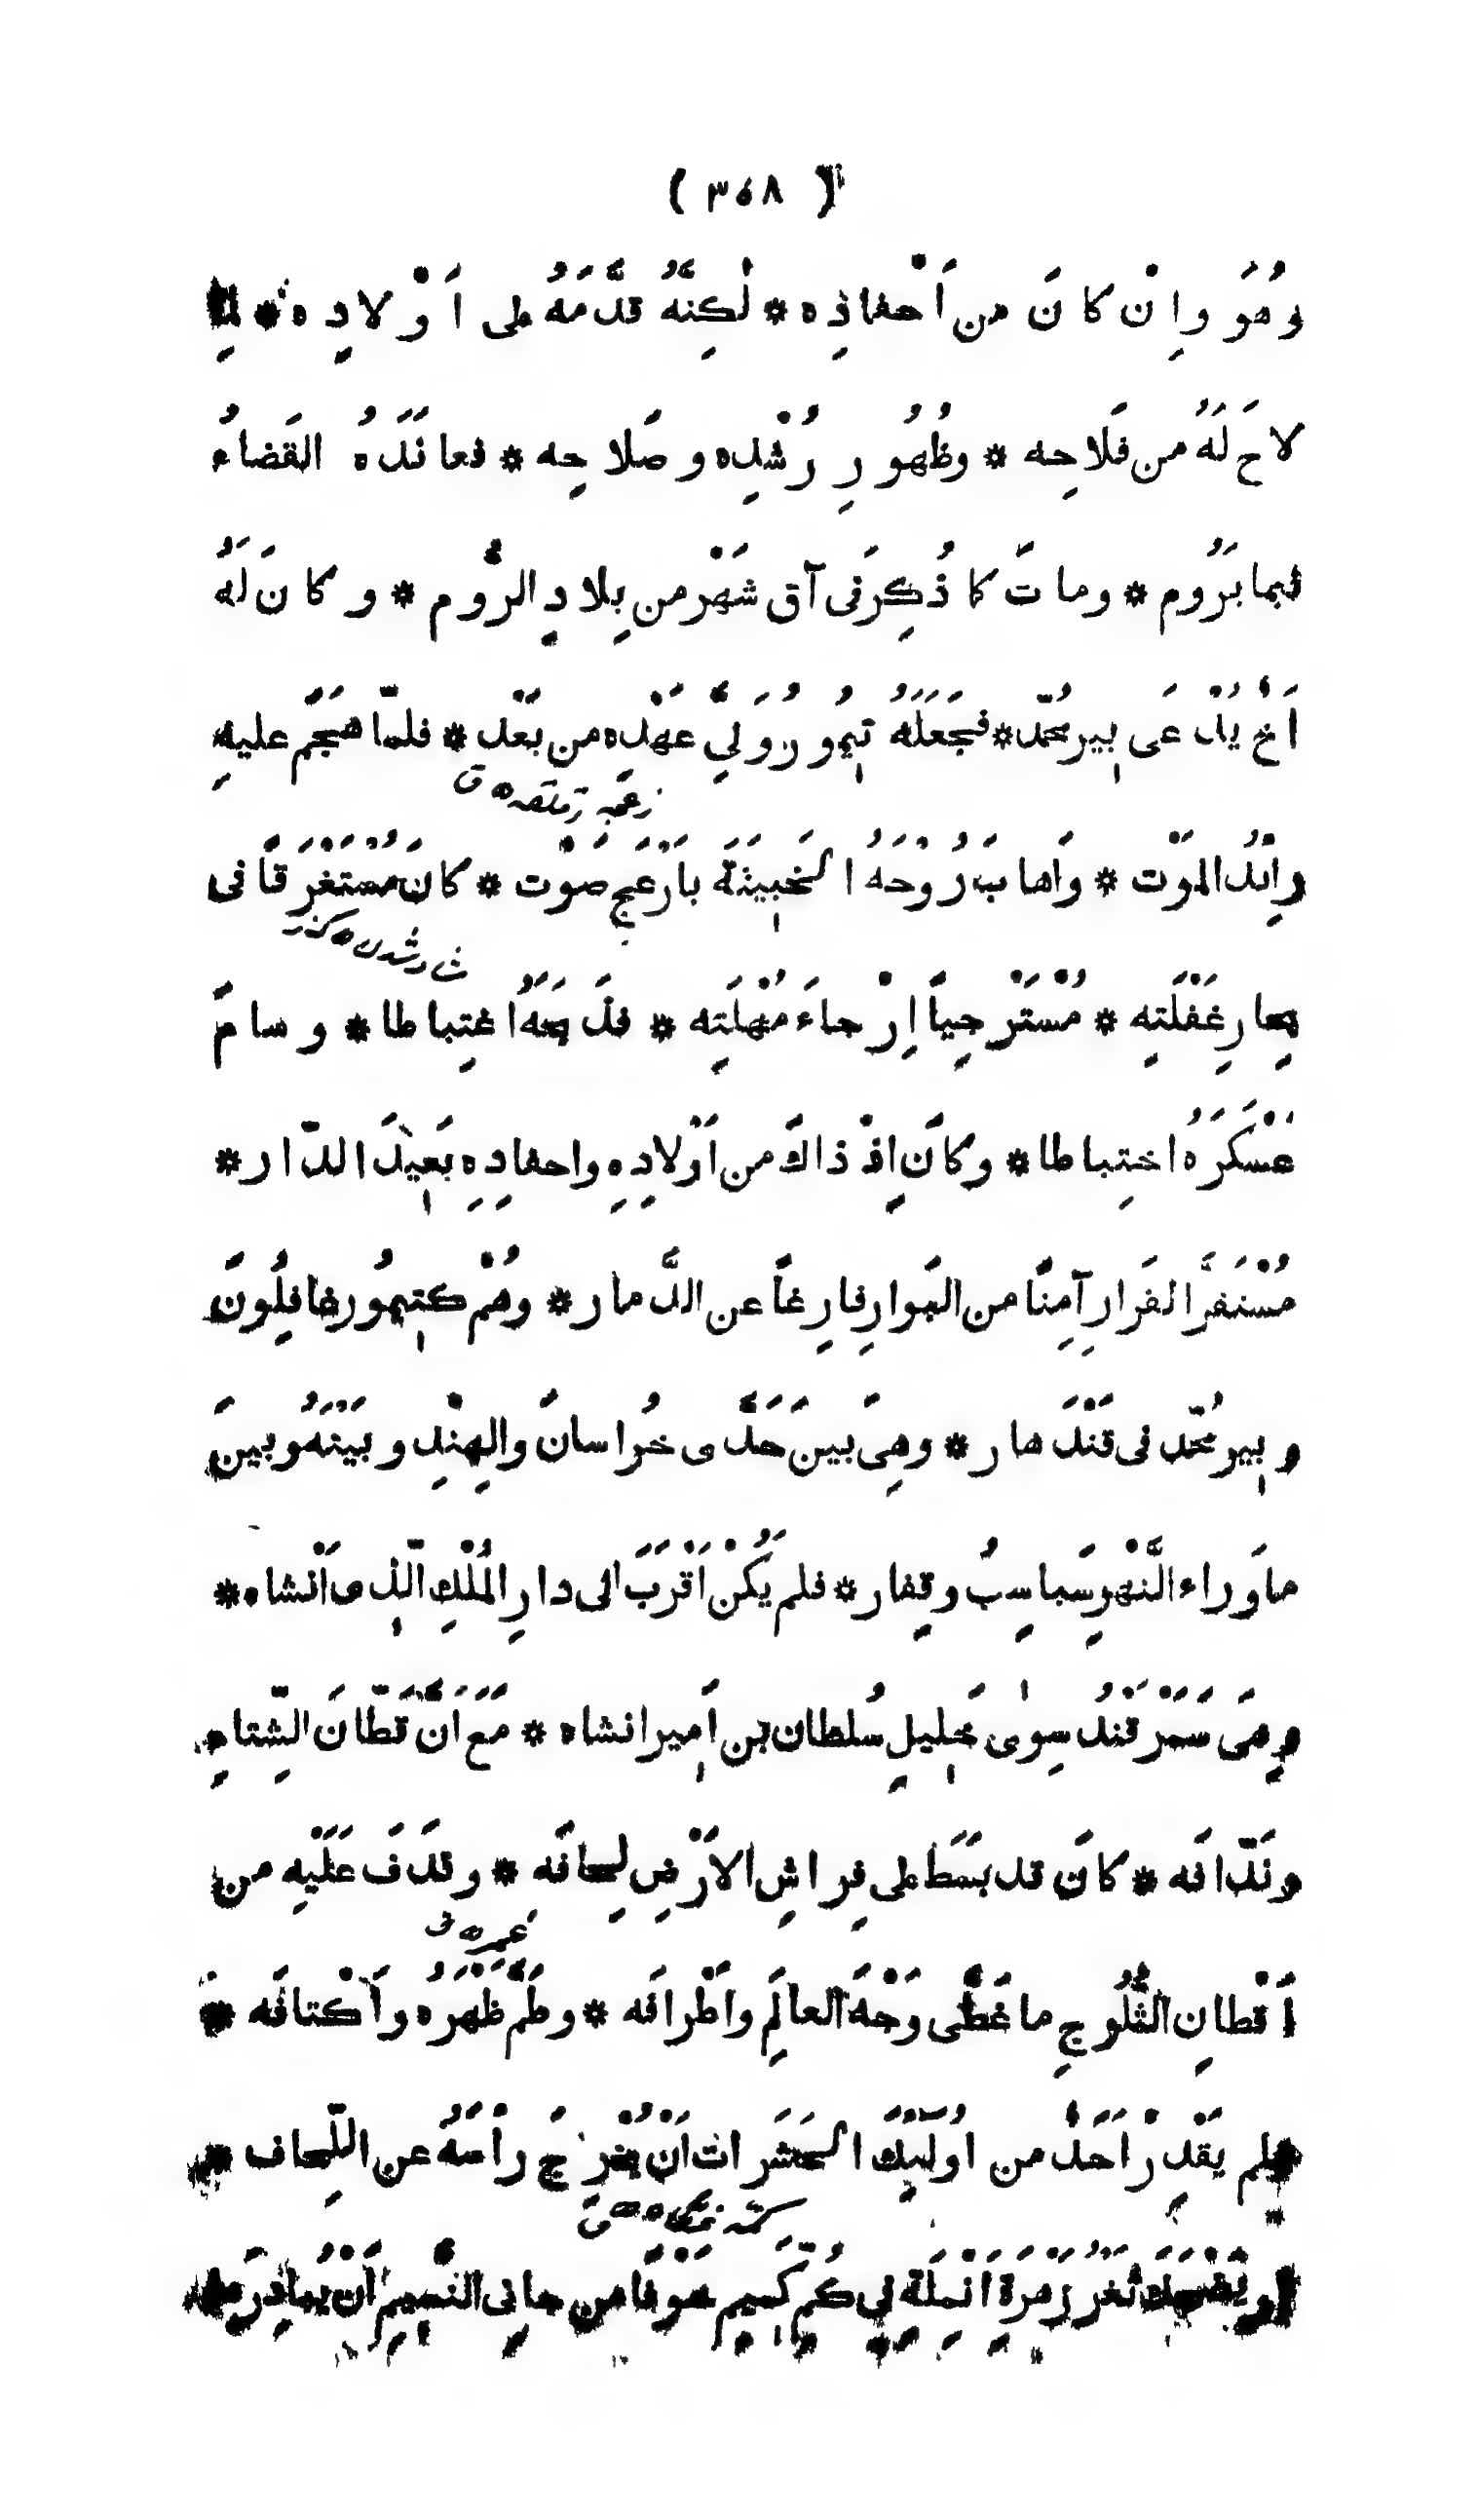 ( ٣٥٨ )
وهُوَ واِنْ كانَ من اَحْفاذِه * لٰكِنَّهُ قدَّمَهُ على اَوْلادِه * لِما
لاحَ لَهُ من فَلاحِه * وظُهُورِ رُشْدِه وصَلاحِه * فعانَدَهُ القَضاءُ
فيما يَرُوم * وماتَ كما ذُكِرَ فى آق شَهْر من بِلادِ الرُّوم * وكانَ لَهُ
اَخٌ يُدْعَى بپير محُمّد * فجَعَلَهُ تيمُورُ وَلِىَّ عَهْدِه من بَعْد * فلمّا هَجَمَ عليهِ
رائِدُ المَوْت * واَهابَ رُوْحَهُ الخَبِيثَةَ بأَزْعَجِ صَوْت * كانَ مُسْتَغْرِقًا فى
بِحارِ غَفْلَتِه * مُسْتَرْجِياً اِرْجاءَ مُهْلَتِه * فذَبحَهُ اغتِباطا * وسامَ
عَسْكَرَهُ اختِباطا * وكانَ اِذْ ذاكَ من اَوْلادِهِ واحفادِهِ بَعِيْدَ الدّار *
مُسْتَقِرَّ القَرارِ آمِنًا من البَوارِ فارِغاً عن الدَّمار * وهُمْ كتيمُور غافِلُونَ
وپير محُمّد فى قَنْدَهار * وهِىَ بينَ حَدَّى خُراسانَ والهِنْدِ وبَيْنَهُ وبينَ
ماوَراء النَّهْرِ سَباسِبُ وقِفار * فلم يَكُنْ اَقْرَبَ الى دارِ المُلْكِ الّذِى اَنْشاه *
وهِىَ سَمَرْقَنْدُ سِوٰى خَلِيلِ سُلطان بن اَميرانشاه * مَعَ اَنَّ قَطّانَ الشِّتاءِ
ونَدّافَه * كانَ قد بسَطَ على فِراشِ الاَرْضِ لِحافَه * وقَذَفَ عَلَيْهِ من
اَقْطانِ الثُّلُوجِ ما غَطَّى وَجْهَ العالَمِ واَطْرافَه * وطَمَّ ظَهْرَهُ واَكْتافَه *
فلم يَقْدِرْ اَحَدٌ من اُولٰئِكَ الحَشَراتِ اَنْ يُخْرِجَ رأسَهُ عن اللِّحاف
خَوْفًا من جانِى النَّسِيمِ اَنْ